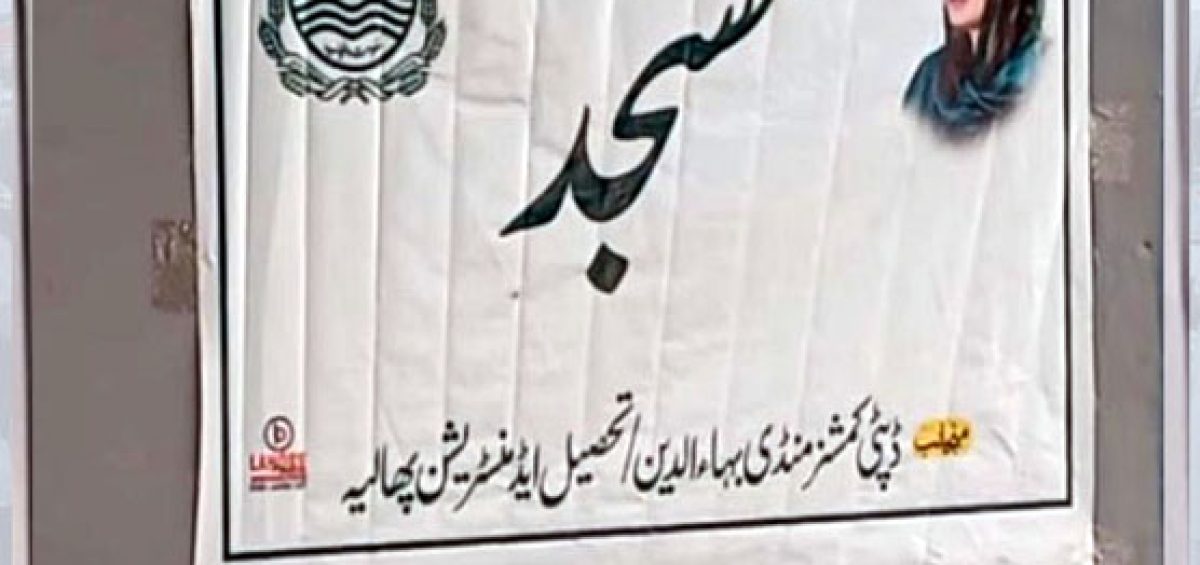 سجد
منجانب ڈپٹی کمشنر منڈی بہاءالدین/تحصیل ایڈمنسٹریشن پھالیہ